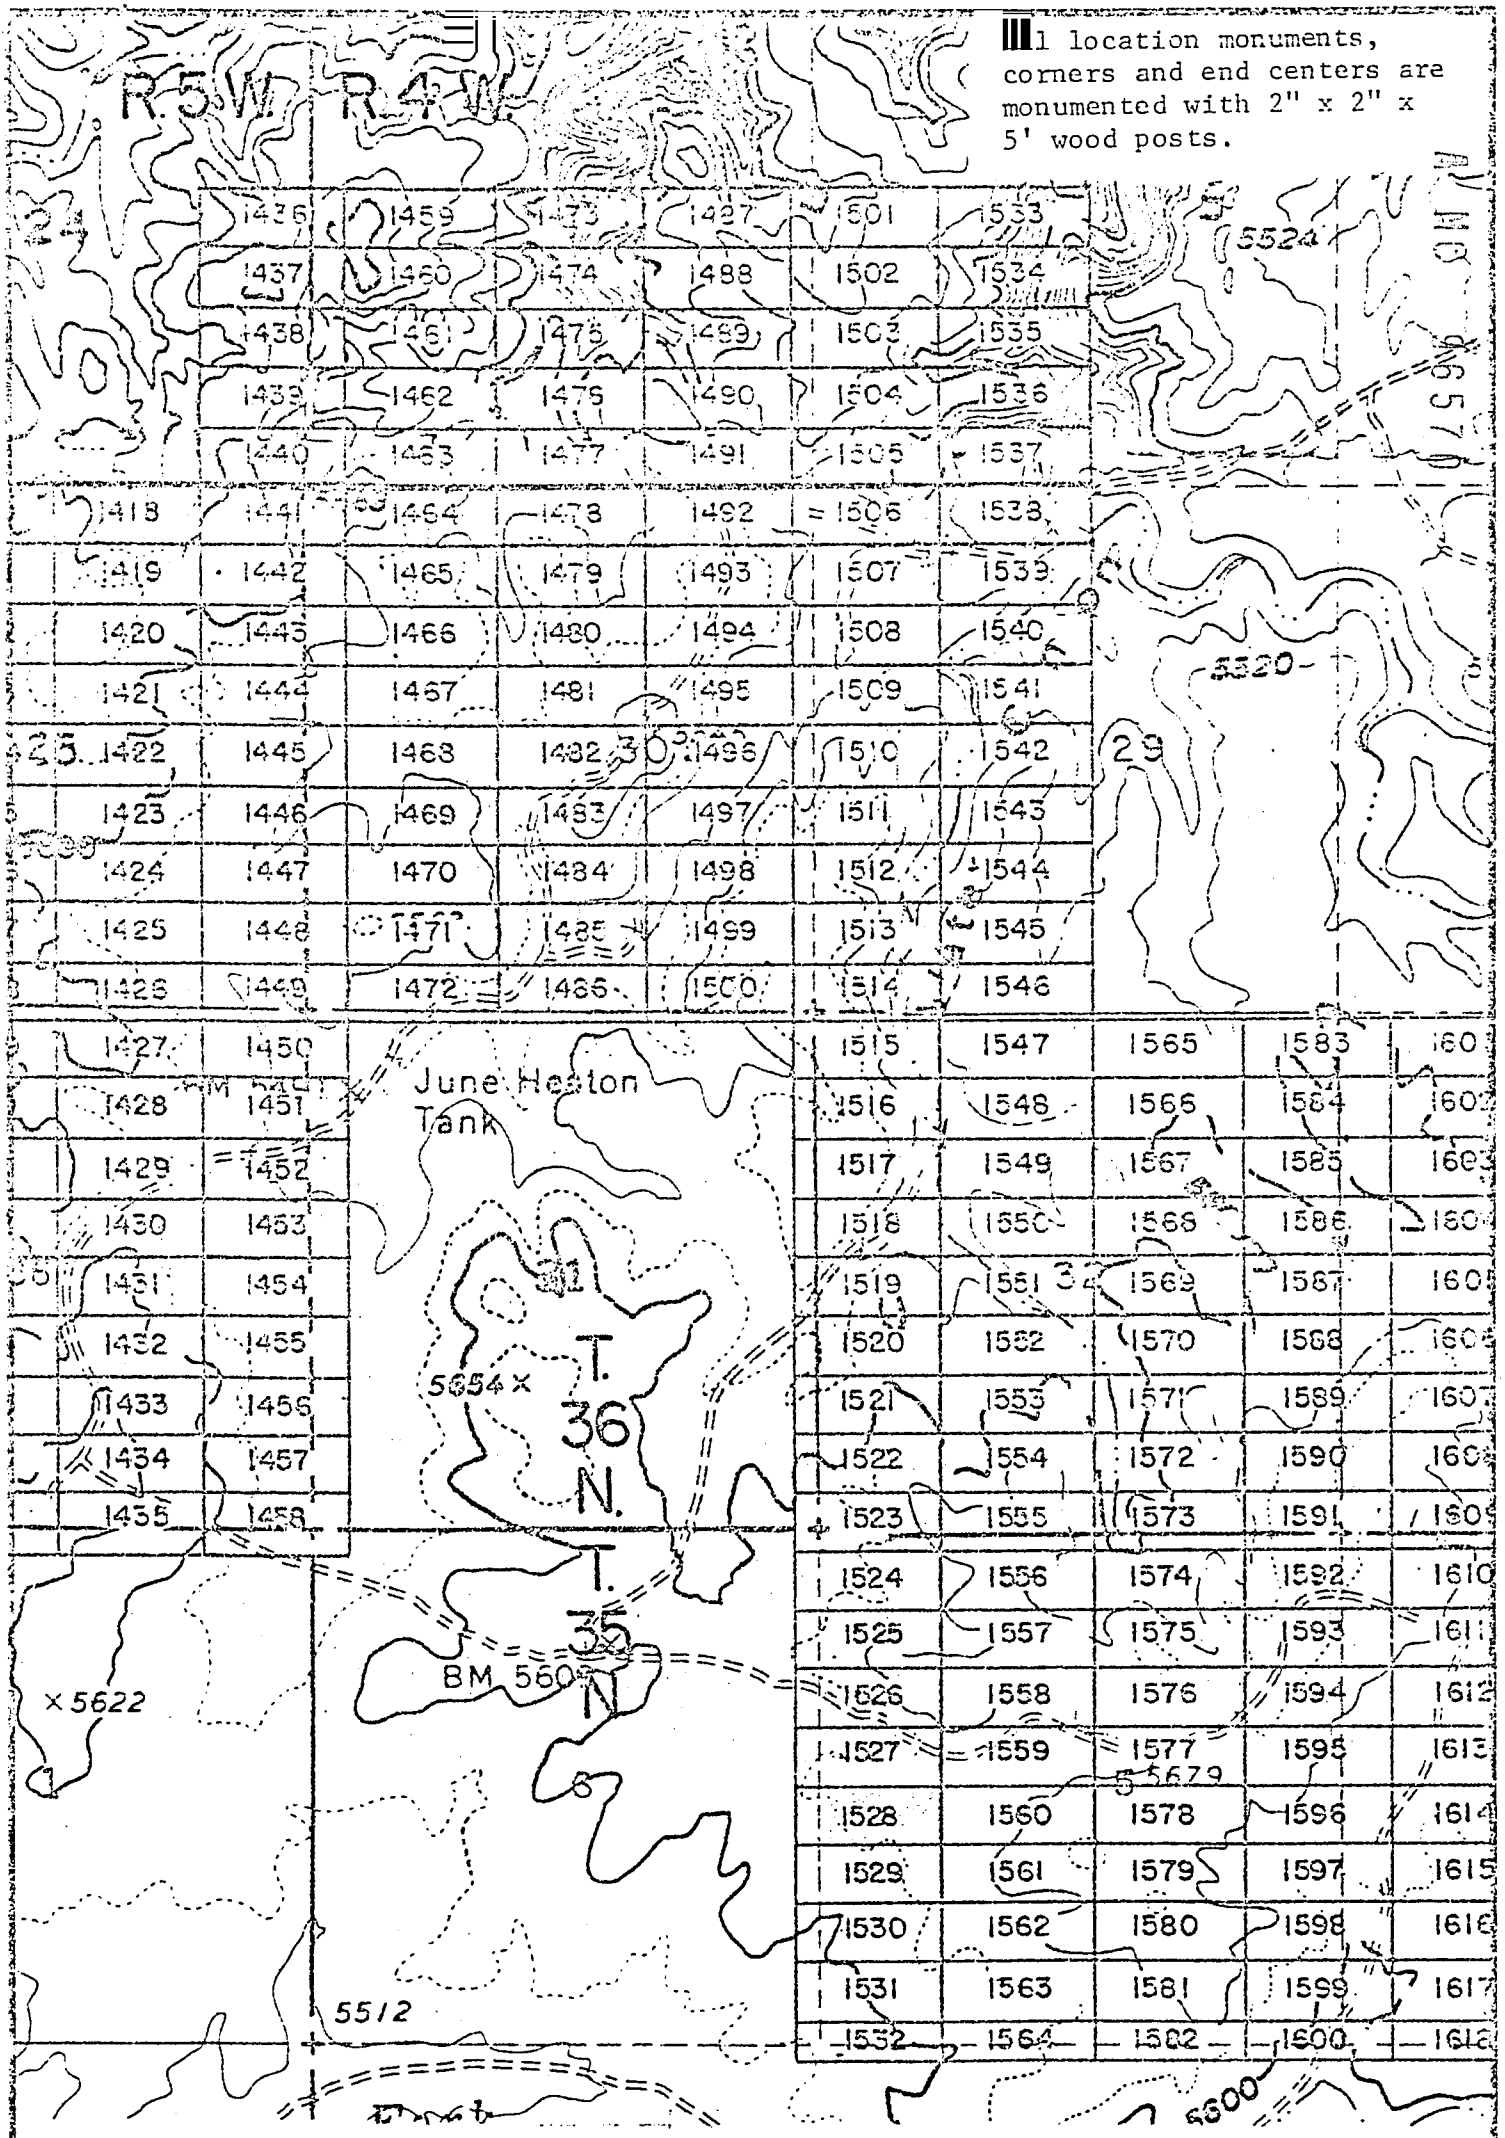 l location monuments,
corners and end centers are
monumented with 2" x 2" x
5' wood posts.
R.5W. R.4W.
24 1436 1459 1473 1427 1501 1533 5524
1437 1460 1474 1488 1502 1534
1438 1461 1475 1489 1503 1535
1439 1462 1476 1490 1504 1536
1440 1463 1477 1491 1505 1537
1418 1441 1464 1478 1492 1506 1538
1419 1442 1465 1479 1493 1507 1539
1420 1443 1466 1480 1494 1508 1540
1421 1444 1467 1481 1495 1509 1541 5520
25 1422 1445 1468 1482 30 1496 1510 1542 29
1423 1446 1469 1483 1497 1511 1543
1424 1447 1470 1484 1498 1512 1544
1425 1448 1471 1485 1499 1513 1545
1426 1449 1472 1486 1500 1514 1546
1427 1450 1515 1547 1565 1583 160
BM June Heaton
1428 1451 1516 1548 1566 1584 1602
Tank
1429 1452 1517 1549 1567 1585 1603
1430 1453 1518 1550 1568 1586 160
1431 1454 31 1519 1551 32 1569 1587 160
1432 1455 T. 1520 1552 1570 1588 160
5654
1433 1456 36 1521 1553 1571 1589 1607
1434 1457 N. 1522 1554 1572 1590 160
1435 1458 1523 1555 1573 1591 1609
T. 1524 1556 1574 1592 1610
35 1525 1557 1575 1593 1611
BM 560
×5622 N 1526 1558 1576 1594 1612
1527 1559 1577 1595 1613
6 5 5679
1528 1560 1578 1596 1614
1529 1561 1579 1597 1615
1530 1562 1580 1598 1616
1531 1563 1581 1599 1617
5512
1532 1564 1582 1600 1618
5600